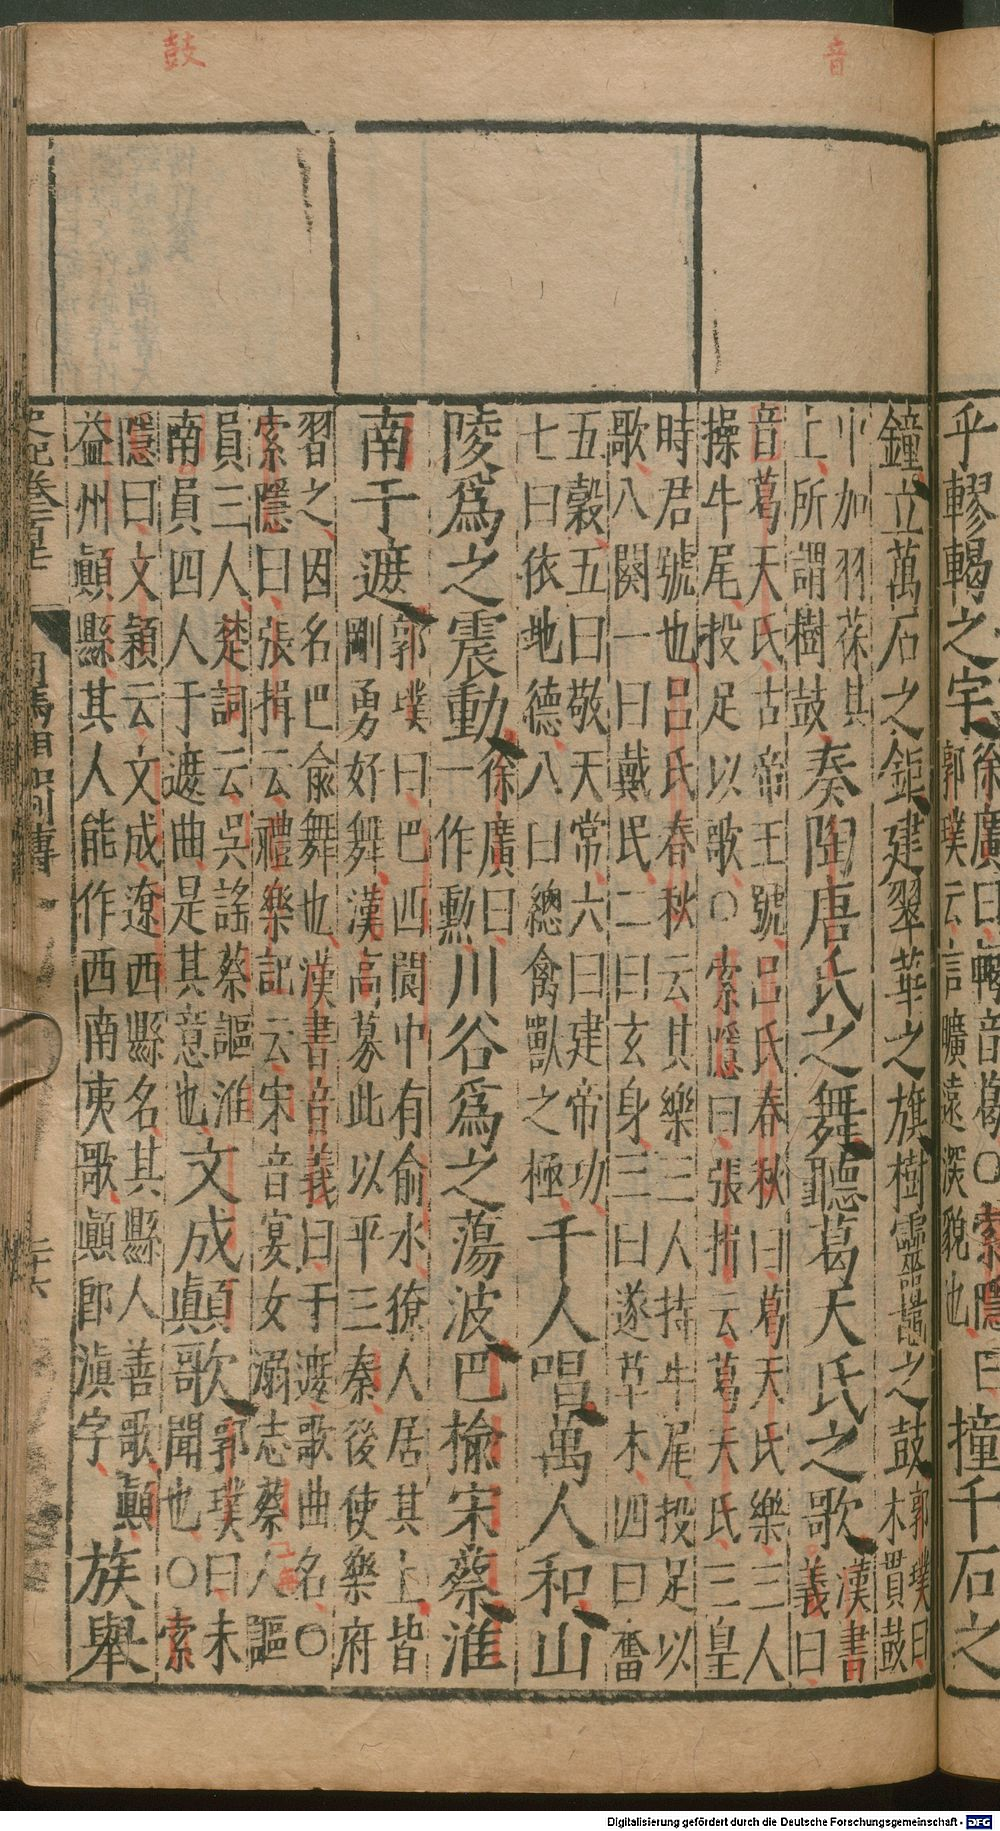 音
鼓
乎轇輵之宇徐廣曰輵音葛○索隱曰
郭璞云言曠遠深貌也撞千石之
鐘立萬石之鉅建翠華之旗樹靈鼉之鼓郭璞曰
木貫鼓
中加羽葆其
上所謂樹鼓奏陶唐氏之舞聽葛天氏之歌漢書
義曰
音葛天氏古帝王號呂氏春秋曰葛天氏樂三人
操牛尾投足以歌○索隱曰張揖云葛天氏三皇
時君號也呂氏春秋云其樂三人持牛尾投足以
歌八闋一曰戴民二曰玄身三曰遂草木四曰奮
五穀五曰敬天常六曰建帝功
七曰依地德八曰總禽獸之極千人唱萬人和山
陵爲之震動徐廣曰
一作勳川谷爲之蕩波巴榆宋蔡淮
南于遮郭璞曰巴四閬中有俞水獠人居其上皆
剛勇好舞漢高募此以平三秦後使樂府
習之因名巴俞舞也漢書音義曰于遮歌曲名○
索隱曰張揖云禮樂記云宋音宴女溺志蔡人謳
員三人楚詞云吳謠蔡謳淮
南員四人于遮曲是其意也文成顛歌郭璞曰未
聞也○索
隱曰文穎云文成遼西縣名其縣人善歌顛
益州顛縣其人能作西南夷歌顛卽滇字族舉
史記卷
司馬相如列傳
二十六
Digitalisierung gefördert durch die Deutsche Forschungsgemeinschaft - DFG